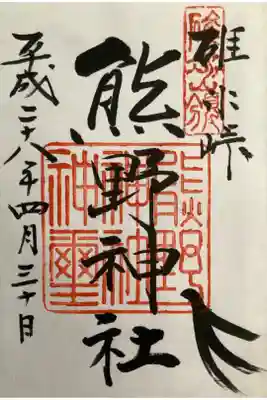 碓氷峠
熊野神社
熊野
神社
神璽
平成二十八年四月三十日